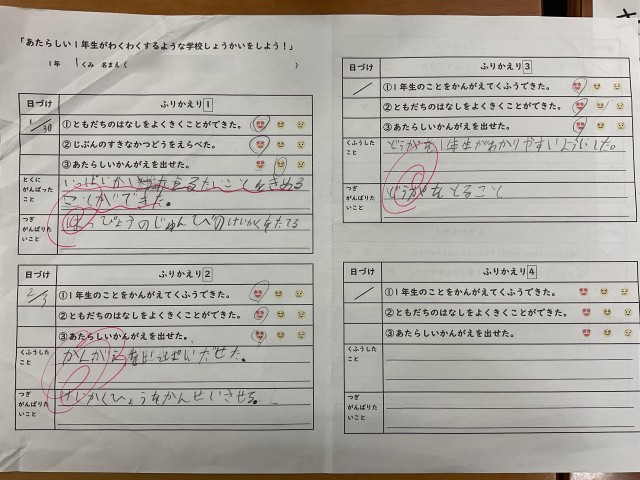 「あたらしい１年生がわくわくするような学校しょうかいをしよう！」
１年 1くみ 名まえ（ ）
日づけ ふりかえり1
1/30 ①ともだちのはなしをよくきくことができた。
②じぶんのすきなかつどうをえらべた。
③あたらしいかんがえを出せた。
とくにがんばったこと
たいことをきめる
ことができた。
つぎがんばりたいこと
はっぴょうのじゅんびのけいかくをたてる
日づけ ふりかえり2
2/3 ①１年生のことをかんがえてくふうできた。
②ともだちのはなしをよくきくことができた。
③あたらしいかんがえを出せた。
くふうしたこと
かんがえをいっぱいだせた。
つぎがんばりたいこと
けいかくひょうをかんせいさせる。
日づけ ふりかえり3
／ ①１年生のことをかんがえてくふうできた。
②ともだちのはなしをよくきくことができた。
③あたらしいかんがえを出せた。
くふうしたこと
どうがを1年生がわかりやすいようにした。
つぎがんばりたいこと
どうがをとること
日づけ ふりかえり4
／ ①１年生のことをかんがえてくふうできた。
②ともだちのはなしをよくきくことができた。
③あたらしいかんがえを出せた。
くふうしたこと
つぎがんばりたいこと